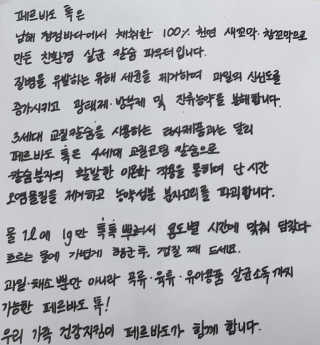 페르바도 톡은
남해 청정바다에서 채취한 100% 천연 새꼬막·참꼬막으로
만든 친환경 살균 칼슘 파우더입니다.
질병을 유발하는 유해 세균을 제거하며 과일의 신선도를
증가시키고 광택제·방부제 및 잔류농약을 분해합니다.
3세대 고칼슘을 사용하는 타사제품과는 달리
페르바도 톡은 4세대 칼슘으로
칼슘분자의 활발한 이온화 작용을 통하여 단시간
오염물질을 제거하고 농약성분 분자고리를 파괴합니다.
물 1L에 1g만 톡톡 뿌려서 용도별 시간에 맞춰 담갔다
흐르는 물에 가볍게 헹군 후, 껍질 째 드세요.
과일·채소 뿐만 아니라 곡류·육류·유아용품 살균소독까지
가능한 페르바도 톡!
우리 가족 건강지킴이 페르바도가 함께 합니다.